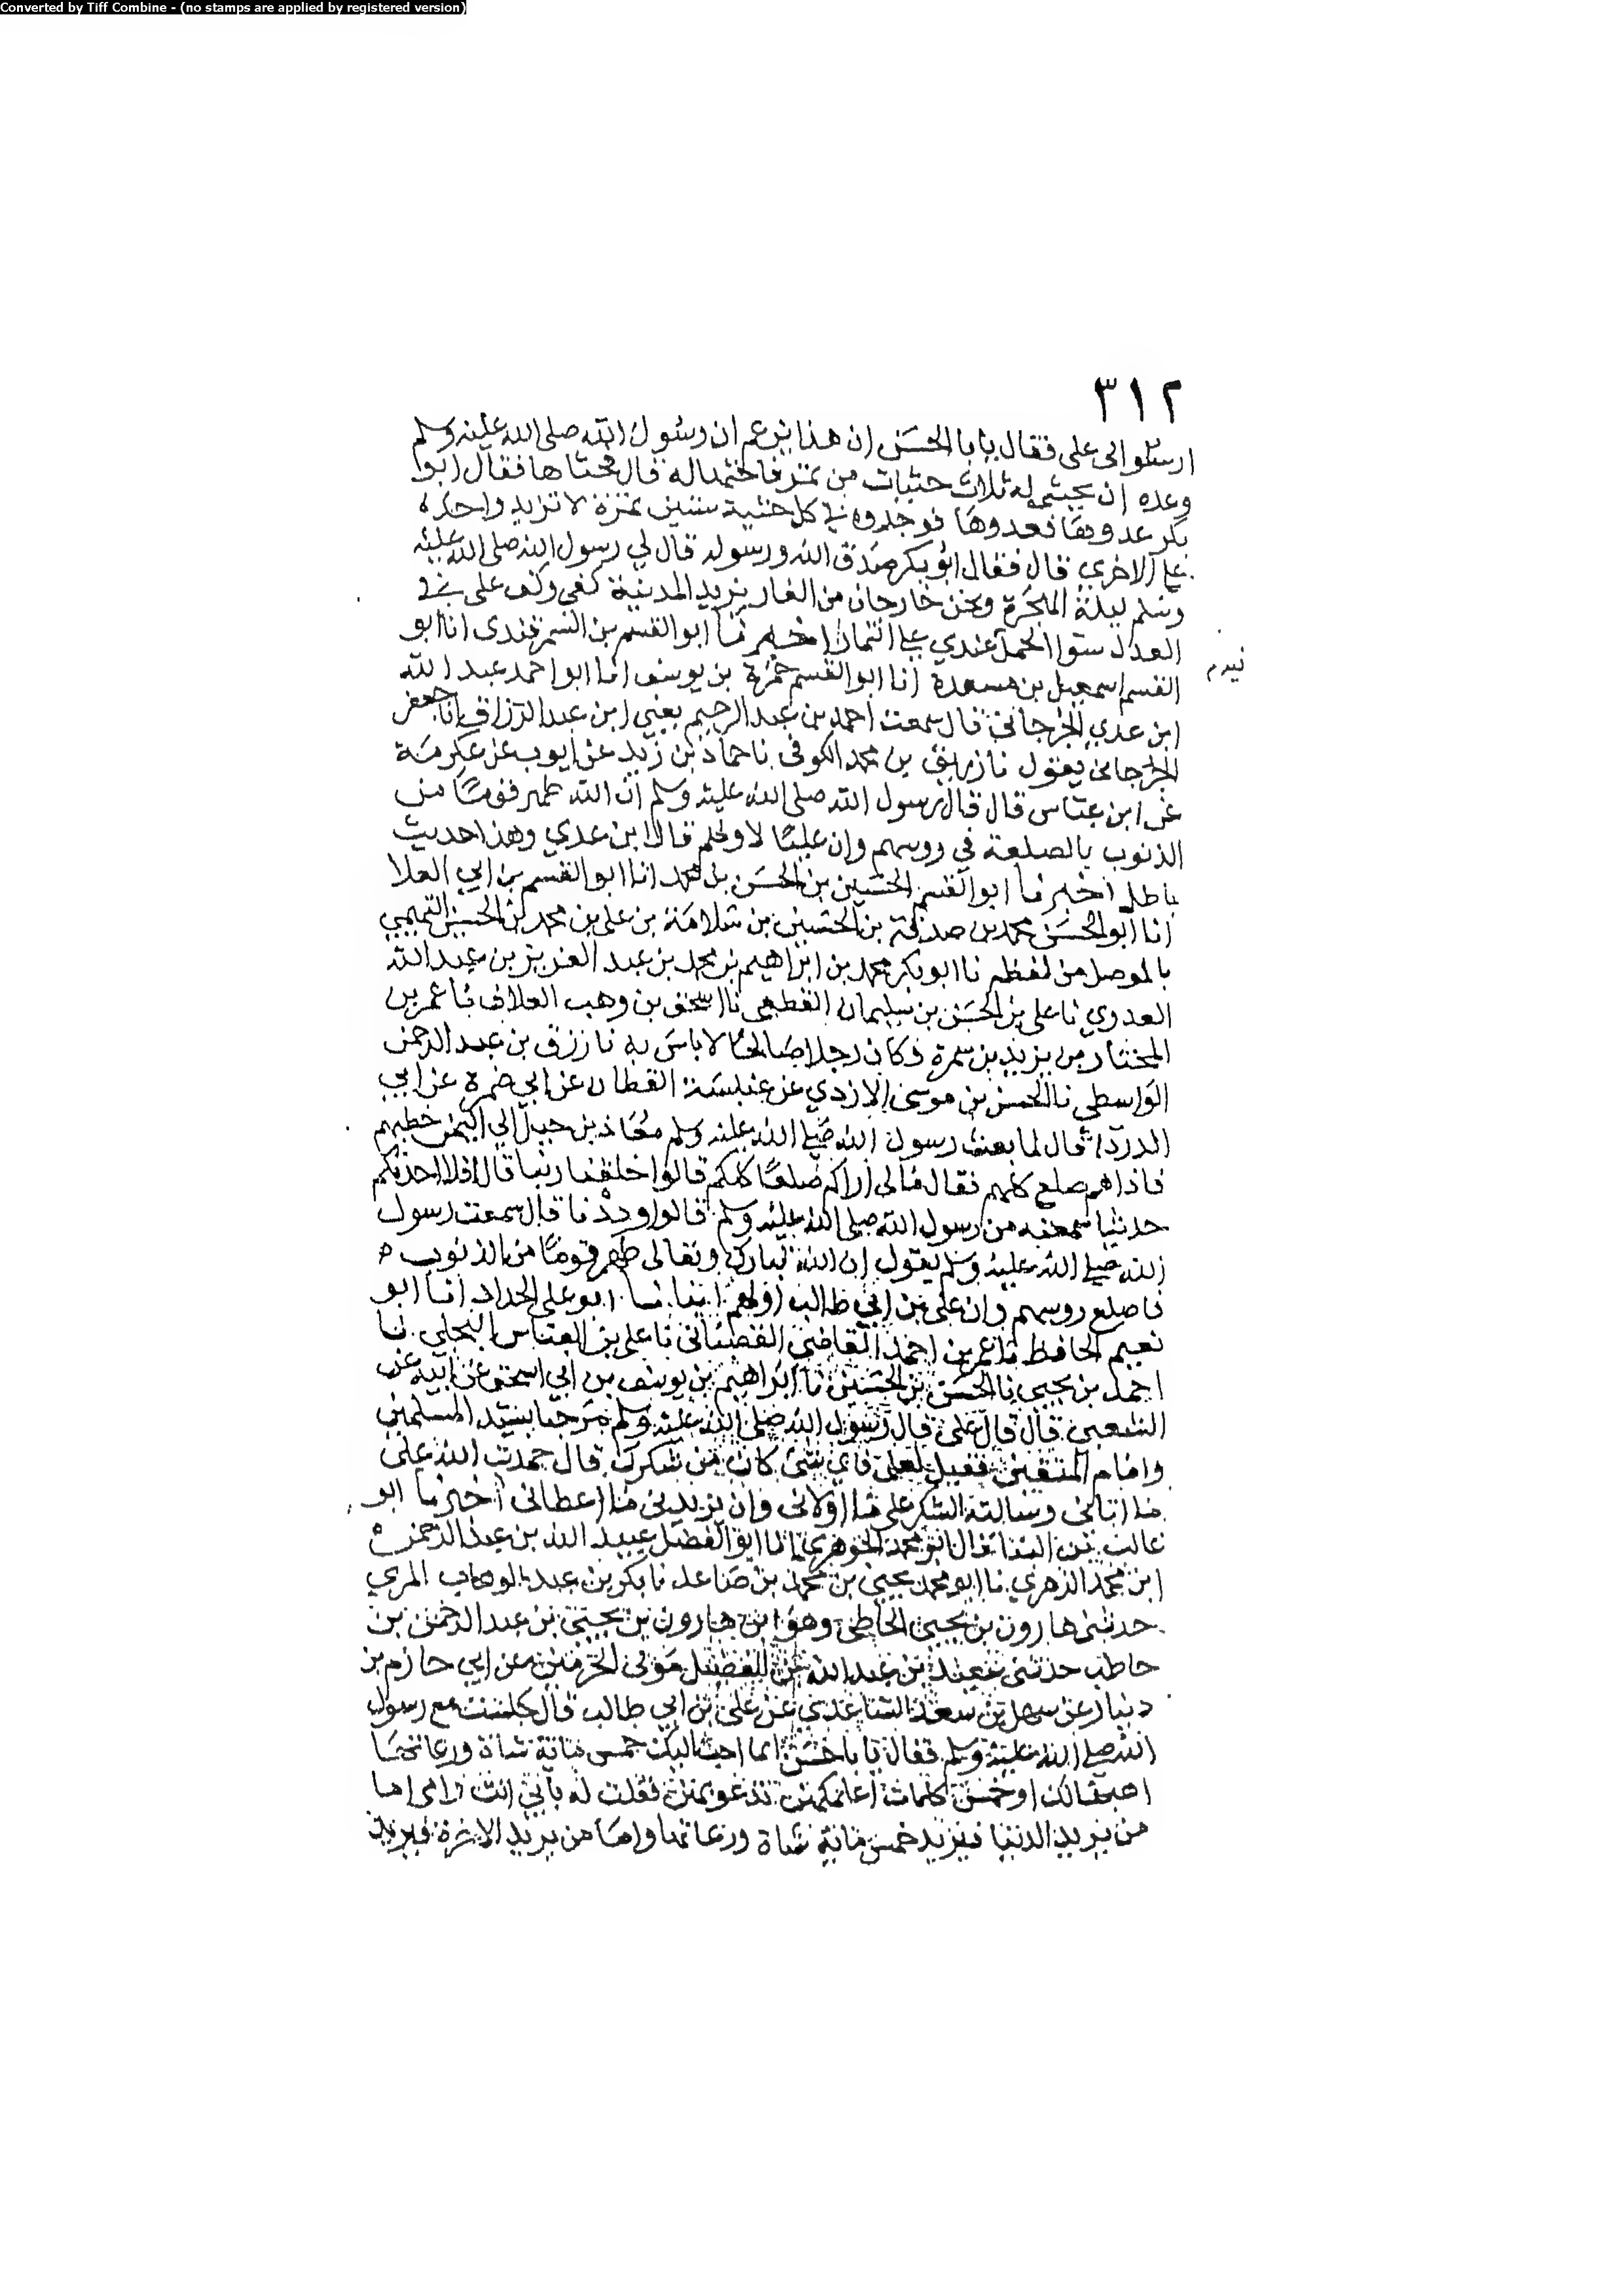 Converted by Tiff Combine - (no stamps are applied by registered version)
٣١٢
ارسلوا الى على فقال يا با الحسن ان هذا يزعم ان رسول الله صلى الله عليه وسلم
وعده ان يحثى له ثلاث حثيات من تمر فاحثها له قال فحثاها فقال ابوا
بكر عدوها فعدوها فوجدوه في كل حثية ستين تمرة لا تزيد واحدة
على الاخرى قال فقال ابو بكر صدق الله ورسوله قال لي رسول الله صلى الله عليه
وسلم ليلة الهجرة ونحن خارجان من الغار نريد المدينة كفى وكف على في
العدل سوا الحمل عندي على التمان اخبرنا ابو القسم بن السمرقندى انا ابو
القسم اسمعيل بن مسعدة انا ابو القسم حمزة بن يوسف انا ابو احمد عبد الله
ابن عدي الجرجاني قال سمعت احمد بن عبد الرحيم يعني ابن عبد الرزاق انا جعفر
الجرجاني يقول نا زريق بن محمد الكوفى نا حماد بن زيد عن ايوب عن عكرمة
عن ابن عباس قال قال رسول الله صلى الله عليه وسلم ان الله طهر قوما من
الذنوب بالصلعة في روسهم وان عليا لاولهم قال ابن عدي وهذا حديث
باطل اخبرنا ابو القسم الحسين بن الحسن بن محمد انا ابو القسم بن ابي العلا
انا ابو الحسن محمد بن صدقة بن الحسين بن سلامة بن على بن محمد بن الحسين التميمي
بالموصل من لفظه نا ابو بكر محمد بن ابراهيم بن محمد بن عبد العزيز بن عبد الله
العدوي نا على بن الحسن بن سليمان القطيعي نا اسحق بن وهب العلاف نا عمر بن
المختار بن يزيد بن سمرة وكان رجلا صالحا لا باس به نا رزق بن عبد الرحمن
الواسطي نا الحسن بن موسى الازدي عن عنبسة القطان عن ابي ضمرة عن ابي
الدردا قال لما بعث رسول الله صلى الله عليه وسلم معاذ بن جبل الى اليمن خطبهم
فاذا هم صلع كلهم فقال مالى اراكم صلعا كلكم قالوا خلقنا ربنا قال افلا احدثكم
حديثا سمعته من رسول الله صلى الله عليه وسلم قالوا وددنا قال سمعت رسول
الله صلى الله عليه وسلم يقول ان الله تبارك وتعالى طهر قوما من الذنوب ه
فاصلع روسهم وان على بن ابي طالب اولهم انبانا ابو على الحداد انا ابو
نعيم الحافظ نا عمر بن احمد القاضي القصبانى نا على بن العباس البجلي نا
احمد بن يحيى نا الحسن بن الحسين نا ابراهيم بن يوسف بن ابي اسحق عن ابيه عن
الشعبي قال قال على قال رسول الله صلى الله عليه وسلم مرحبا بسيد المسلمين
وامام المتقين فقيل لعلى فاي شئ كان من شكرك قال حمدت الله على
ما اتانى وسالته الشكر على ما اولانى وان يزيدنى مما اعطانى اخبرنا ابو
غالب بن البنا نا ابو محمد الجوهري انا ابو الفضل عبيد الله بن عبد الرحمن ه
ابن محمد الزهري نا ابو محمد يحيى بن محمد بن صاعد نا بكر بن عبد الوهاب المري
حدثنى هارون بن يحيى الحاطبى وهو ابن هارون بن يحيى بن عبد الرحمن بن
حاطب حدثنى بن عبد الله بن الفضل مولى عن ابي حازم بن
دينار عن سهل بن سعد الساعدي عن على بن ابي طالب قال جلست مع رسول
الله صلى الله عليه وسلم فقال يا با حسن ايما احب اليك خمس مائة شاة ورعاتها
اهبها لك او خمس كلمات اعلمكهن تدعو بهن فقلت له بابي انت وامى اما
من يريد الدنيا فيريد خمس مائة شاة ورعاتها واما من يريد الاخرة فيريد